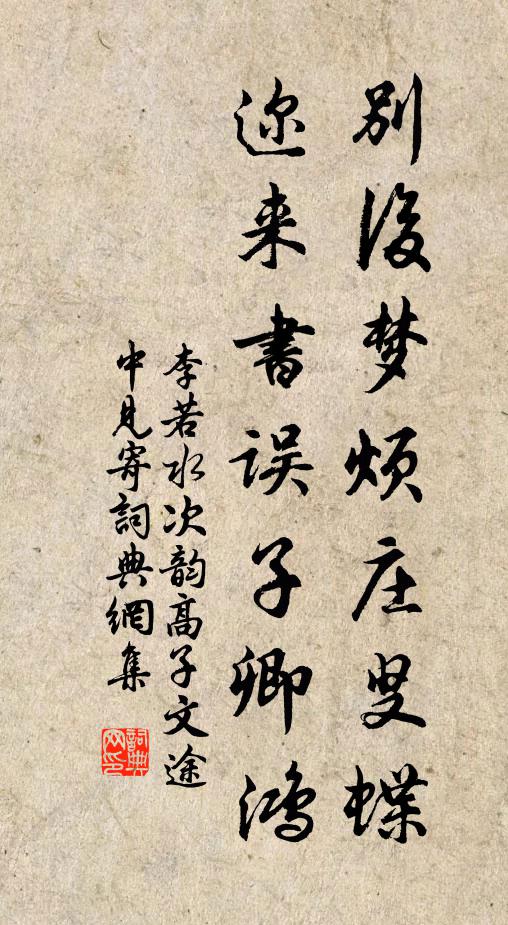 別後梦烦庄叟蝶
迩来書误子卿鸿
李若水次韵高子文途
中见寄詞典網集
詞典网印